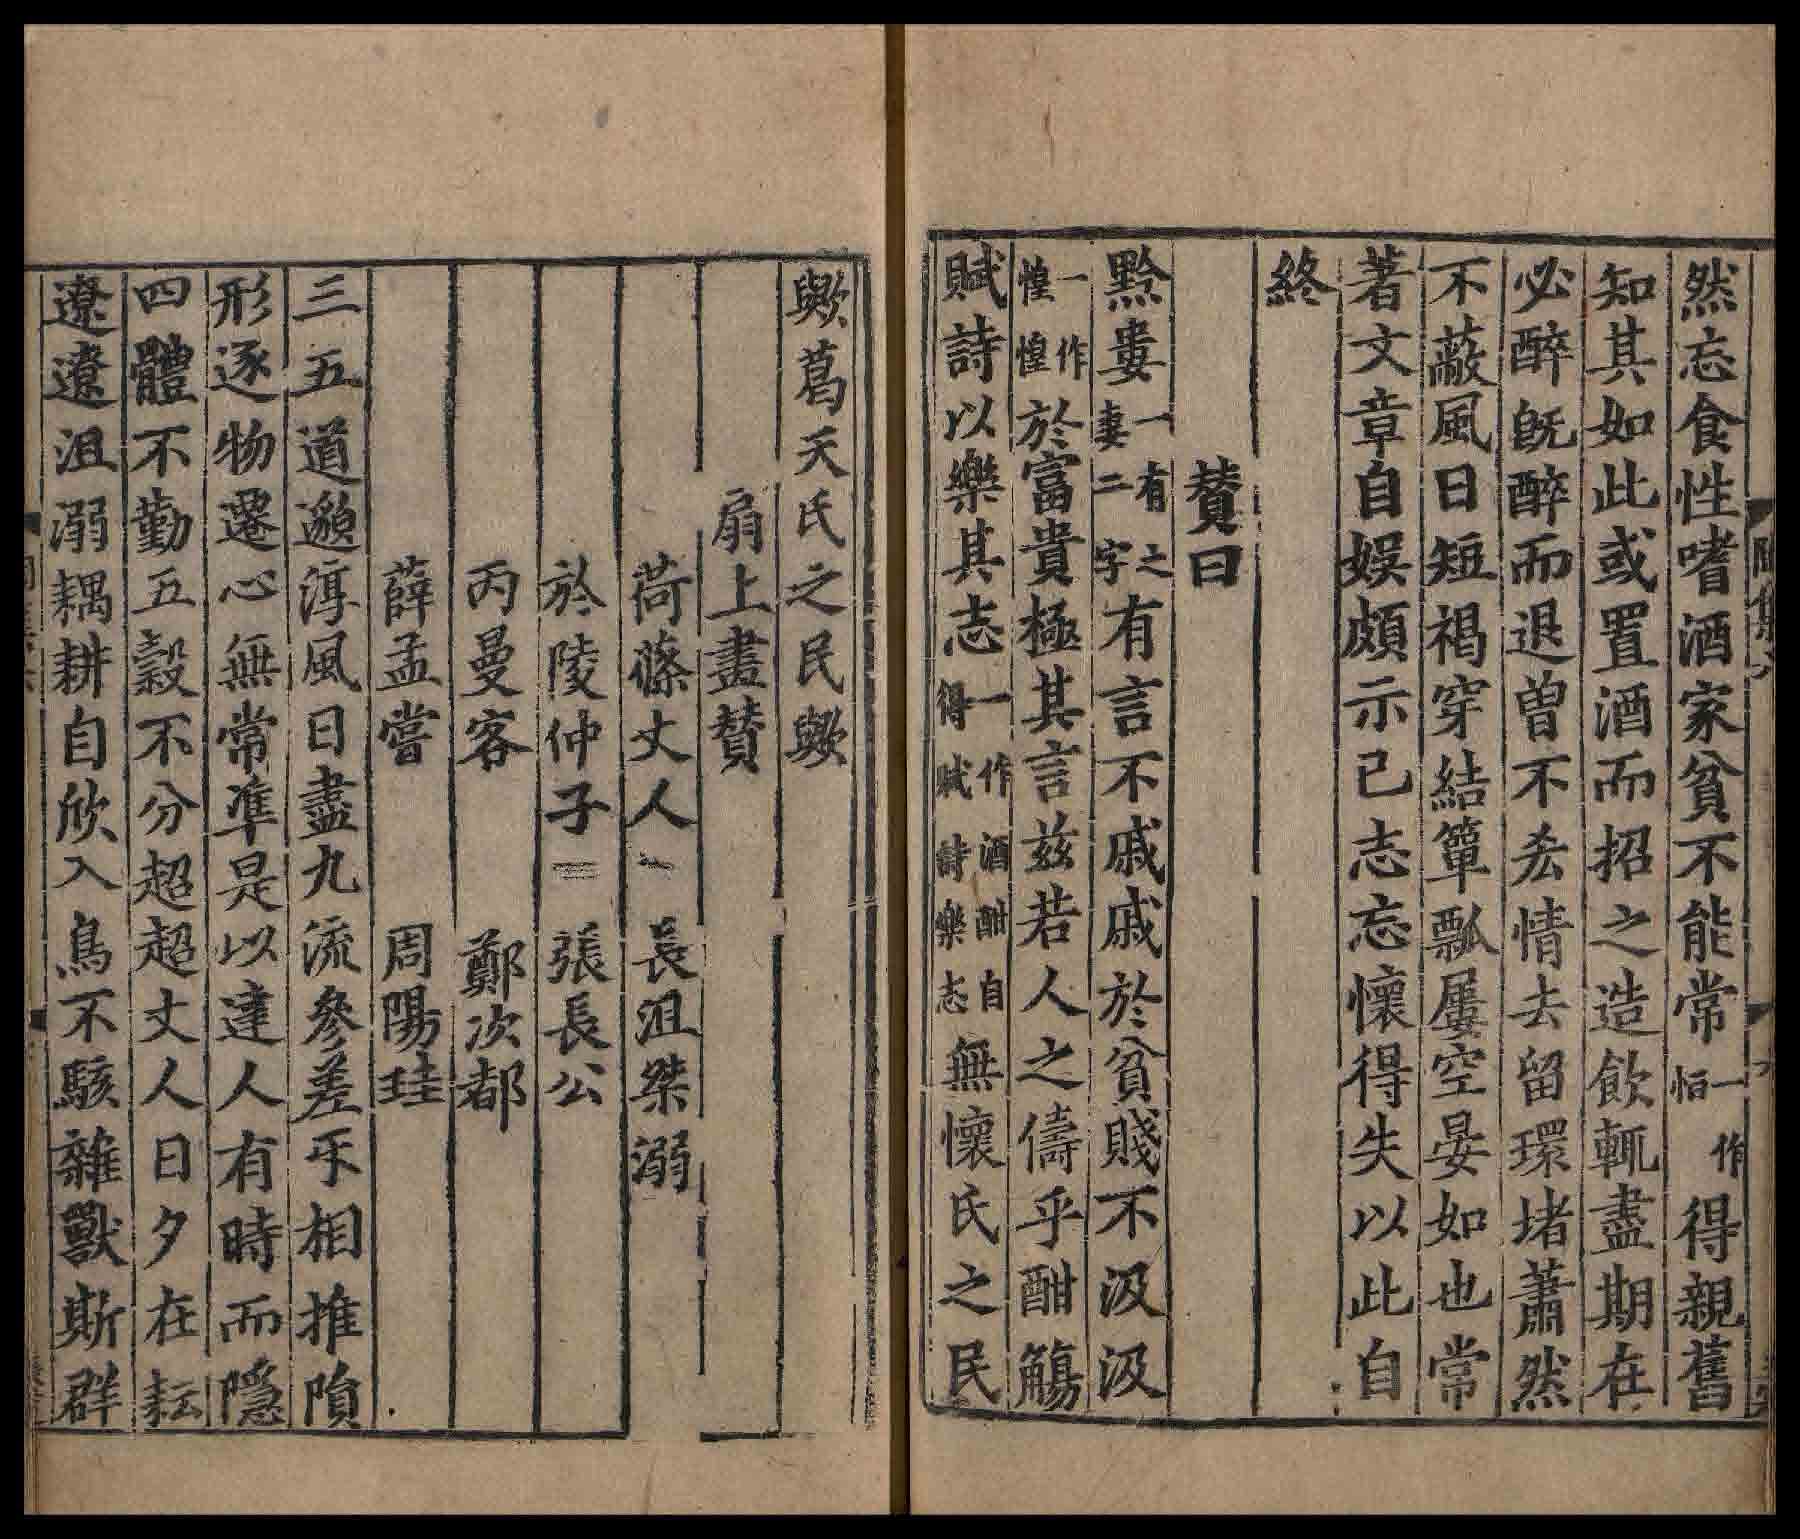 然忘食性嗜酒家貧不能常一作恒得親舊
知其如此或置酒而招之造飲輒盡期在
必醉既醉而退曾不吝情去留環堵蕭然
不蔽風日短褐穿結簞瓢屢空晏如也常
著文章自娛頗示己志忘懷得失以此自
終
贊曰
黔婁一有之妻二字有言不戚戚於貧賤不汲汲
一作惶惶於富貴極其言茲若人之儔乎酣觴
賦詩以樂其志一作酒酣自得賦詩樂志無懷氏之民
歟葛天氏之民歟
扇上畫贊
荷蓧丈人 長沮桀溺
於陵仲子 張長公
丙曼容 鄭次都
薛孟嘗 周陽珪
三五道邈淳風日盡九流參差互相推隕
形逐物遷心無常準是以達人有時而隱
四體不勤五穀不分超超丈人日夕在耘
遼遼沮溺耦耕自欣入鳥不駭雜獸斯群